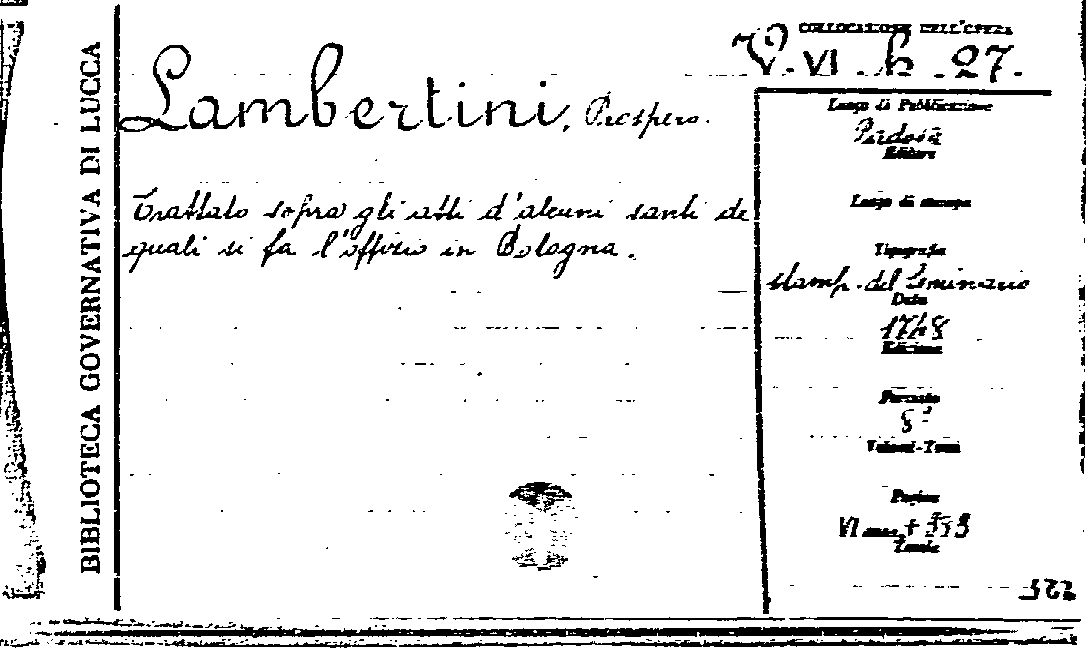 BIBLIOTECA GOVERNATIVA DI LUCCA
COLLOCAZIONE DELL'OPERA
V. VI. h. 27.
Lambertini, Prospero.
Trattato sopra gli atti d'alcuni santi de
quali si fa l'offizio in Bologna.
Luogo di Pubblicazione
Padova
Editore
Luogo di stampa
Tipografia
stamp. del Seminario
Data
1748
Edizione
Formato
8°
Volumi-Tomi
Pagine
VI
Tavole